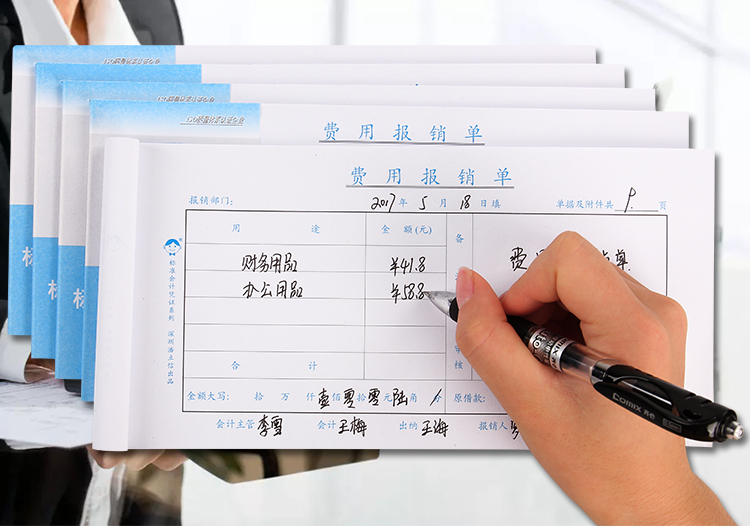 费用报销单
费用报销单
报销部门: 2017年 5月 18日填 单据及附件共 9 页
用途 金额(元) 备
财务用品 ¥41.8
办公用品 ¥58.8
合计 核
金额大写: 拾 万 仟 壹佰 零拾 零元 陆角 / 分 原借款:
会计主管 李雪 会计 王梅 出纳 王海 报销人
标准会计凭证系列 深圳浩立信出品
COMIX 齐心